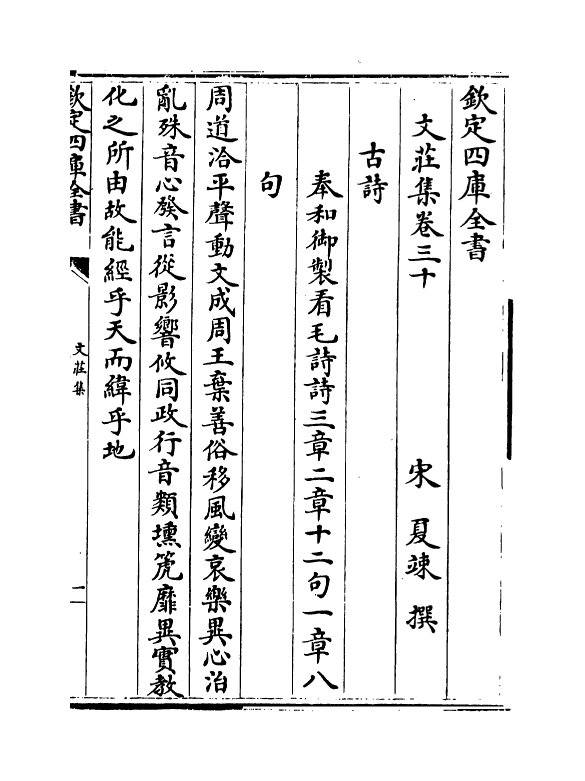 欽定四庫全書
文莊集卷三十
宋 夏竦 撰
古詩
奉和御製看毛詩詩三章二章十二句一章八
句
周道洽平聲動文成周王棄善俗移風變哀樂異心治
亂殊音心發言從影響攸同政行音類壎箎靡異實教
化之所由故能經乎天而緯乎地
欽定四庫全書
文莊集
一